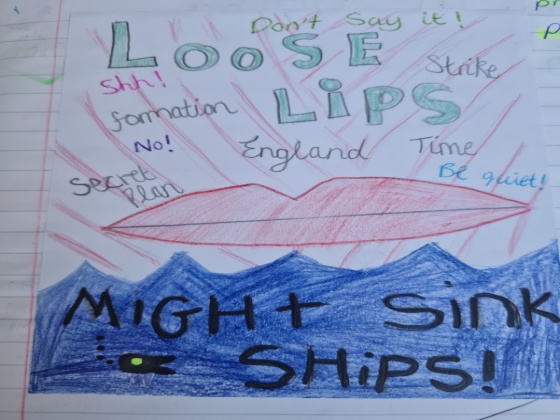 Don't Say it!
LOOSE
Shh!
Strike
LiPS
formation
No!
England
Time
Be quiet!
Secret
Plan
MiGHt Sink
SHiPS!